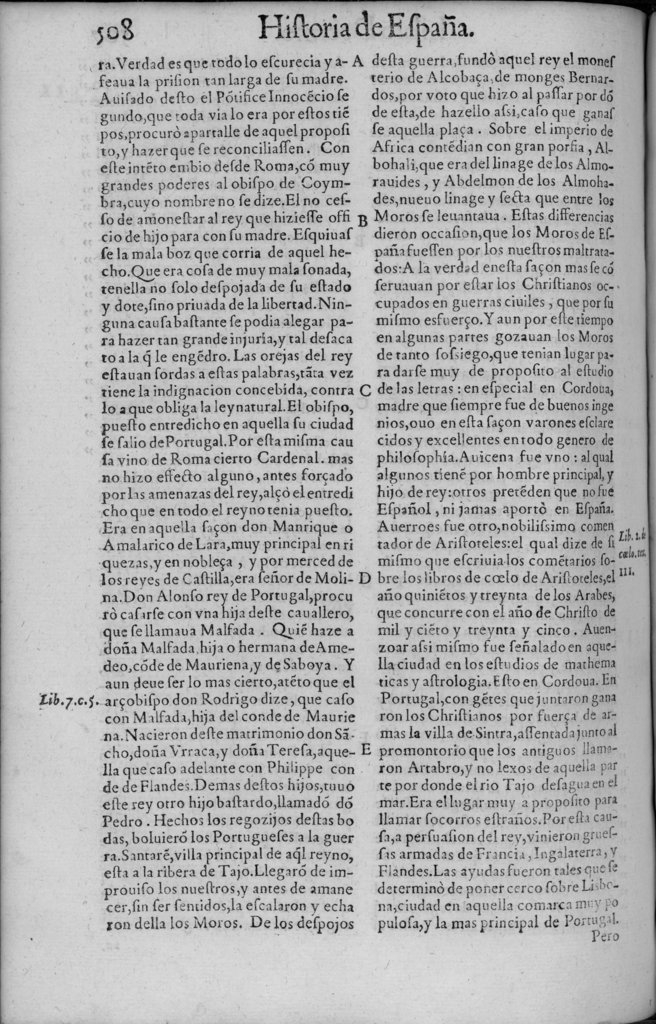 508
Hiſtoria de Eſpaña.
ra.Verdad es que todo lo eſcurecia y a-
feaua la priſion tan larga de ſu madre.
Auiſado deſto el Põtifice Innocẽcio ſe
gundo,que toda via lo era por eſtos tiẽ
pos,procurò apartalle de aquel propoſi
to,y hazer que ſe reconciliaſſen. Con
eſte intẽto embio deſde Roma,cõ muy
grandes poderes al obiſpo de Coym-
bra,cuyo nombre no ſe dize.El no ceſ-
ſo de amoneſtar al rey que hizieſſe offi
cio de hijo para con ſu madre. Eſquiuaſ
ſe la mala boz que corria de aquel he-
cho.Que era coſa de muy mala ſonada,
tenella no ſolo deſpojada de ſu eſtado
y dote,ſino priuada de la libertad.Nin-
guna cauſa baſtante ſe podia alegar pa-
ra hazer tan grande injuria,y tal deſaca
to a la q̃ le engẽdro. Las orejas del rey
eſtauan ſordas a eſtas palabras,tãta vez
tiene la indignacion concebida, contra
lo a que obliga la ley natural.El obiſpo,
pueſto entredicho en aquella ſu ciudad
ſe ſalio de Portugal.Por eſta miſma cau
ſa vino de Roma cierto Cardenal. mas
no hizo effecto alguno, antes forçado
por las amenazas del rey,alçò el entredi
cho que en todo el reyno tenia pueſto.
Era en aquella ſaçon don Manrique o
Amalarico de Lara,muy principal en ri
quezas,y en nobleça , y por merced de
los reyes de Caſtilla,era ſeñor de Moli-
na.Don Alonſo rey de Portugal,procu
rò caſarſe con vna hija deſte cauallero,
que ſe llamaua Malfada . Quiẽ haze a
doña Malfada hija o hermana de Ame-
deo,cõde de Mauriena,y de Saboya . Y
aun deue ſer lo mas cierto,atẽto que el
Lib.7.c.5.
arçobiſpo don Rodrigo dize, que caſo
con Malfada,hija del conde de Maurie
na.Nacieron deſte matrimonio don Sã-
cho,doña Vrraca,y doña Tereſa,aque-
lla que caſo adelante con Philippe con
de de Flandes.Demas deſtos hijos,tuuo
eſte rey otro hijo baſtardo,llamadó dõ
Pedro . Hechos los regozijos deſtas bo
das, boluierõ los Portugueſes a la guer
ra.Santarẽ,villa principal de aq̃l reyno,
eſta a la ribera de Tajo.Llegarõ de im-
prouiſo los nueſtros,y antes de amane
cer,ſin ſer ſentidos,la eſcalaron y echa
ron della los Moros. De los deſpojos
A
B
C
D
E
deſta guerra,fundò aquel rey el moneſ
terio de Alcobaça,de monges Bernar-
dos,por voto que hizo al paſſar por dõ
de eſta,de hazello aſsi,caſo que ganaſ
ſe aquella plaça . Sobre el imperio de
Africa contẽdian con gran porfia , Al-
bohali,que era del linage de los Almo-
rauides , y Abdelmon de los Almoha-
des,nueuo linage y ſecta que entre los
Moros ſe leuantaua . Eſtas differencias
dieron occaſion,que los Moros de Eſ-
paña fueſſen por los nueſtros maltrata-
dos:A la verdad en eſta ſaçon mas ſe cõ
ſeruauan por eſtar los Chriſtianos oc-
cupados en guerras ciuiles , que por ſu
miſmo esfuerço.Y aun por eſte tiempo
en algunas partes gozauan los Moros
de tanto ſoſsiego,que tenian lugar pa-
ra darſe muy de propoſito al eſtudio
de las letras : en eſpecial en Cordoua,
madre que ſiempre fue de buenos inge
nios,ouo en eſta ſaçon varones eſclare
cidos y excellentes en todo genero de
philoſophía.Auicena fue vno : al qual
algunos tienẽ por hombre principal, y
hijo de rey:otros pretẽden que no fue
Eſpañol , ni jamas aportò en Eſpaña.
Auerroes fue otro,nobiliſsimo comen
tador de Ariſtoteles:el qual dize de ſi
miſmo que eſcriuia los comẽtarios ſo-
bre los libros de cœlo de Ariſtoteles,el
año quiniẽtos y treynta de los Arabes,
que concurre con el año de Chriſto de
mil y ciẽto y treynta y cinco . Auen-
zoar aſsi miſmo fue ſeñalado en aque-
lla ciudad en los eſtudios de mathema
ticas y aſtrologia. Eſto en Cordoua. En
Portugal,con gẽtes que juntaron gana
ron los Chriſtianos por fuerça de ar-
mas la villa de Sintra,aſſentada junto al
promontorio que los antiguos llama-
ron Artabro,y no lexos de aquella par
te por donde el rio Tajo deſagua en el
mar.Era el lugar muy a propoſito para
llamar ſocorros eſtraños.Por eſta cau-
ſa,a perſuaſion del rey,vinieron grueſ-
ſas armadas de Francia, Ingalaterra, y
Flandes.Las ayudas fueron tales que ſe
determinò de poner cerco ſobre Lisbo-
na,ciudad en aquella comarca muy po
puloſa,y la mas principal de Portugal.
Lib. 2. de
cœlo.tex.
III.
Pero